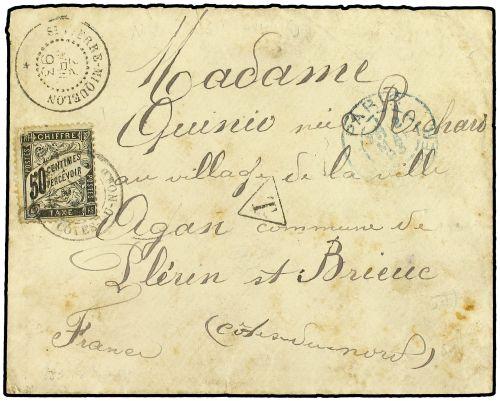 ST PIERRE-MIQUELON
Madame
Quinio née Richard
PARIS
au village de la ville
CHIFFRE
50 CENTIMES
A PERCEVOIR
TAXE
POSTES
CÔTES-DU-NORD
T
Agan commune de
Plérin st Brieuc
(côtes du nord)
France